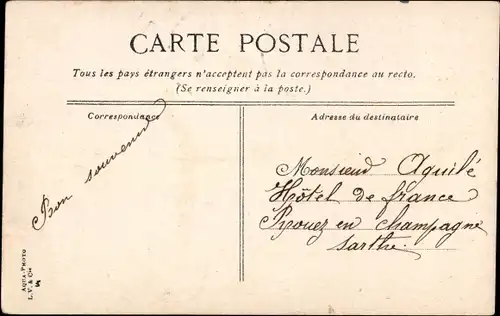 CARTE POSTALE
Tous les pays étrangers n'acceptent pas la correspondance au recto.
(Se renseigner à la poste.)
Correspondance
Bon souvenir
Adresse du destinataire
Monsieur Aquilé
Hôtel de france
Rouez en champagne
sarthe
AQUA-PHOTO
L. V. & Cie